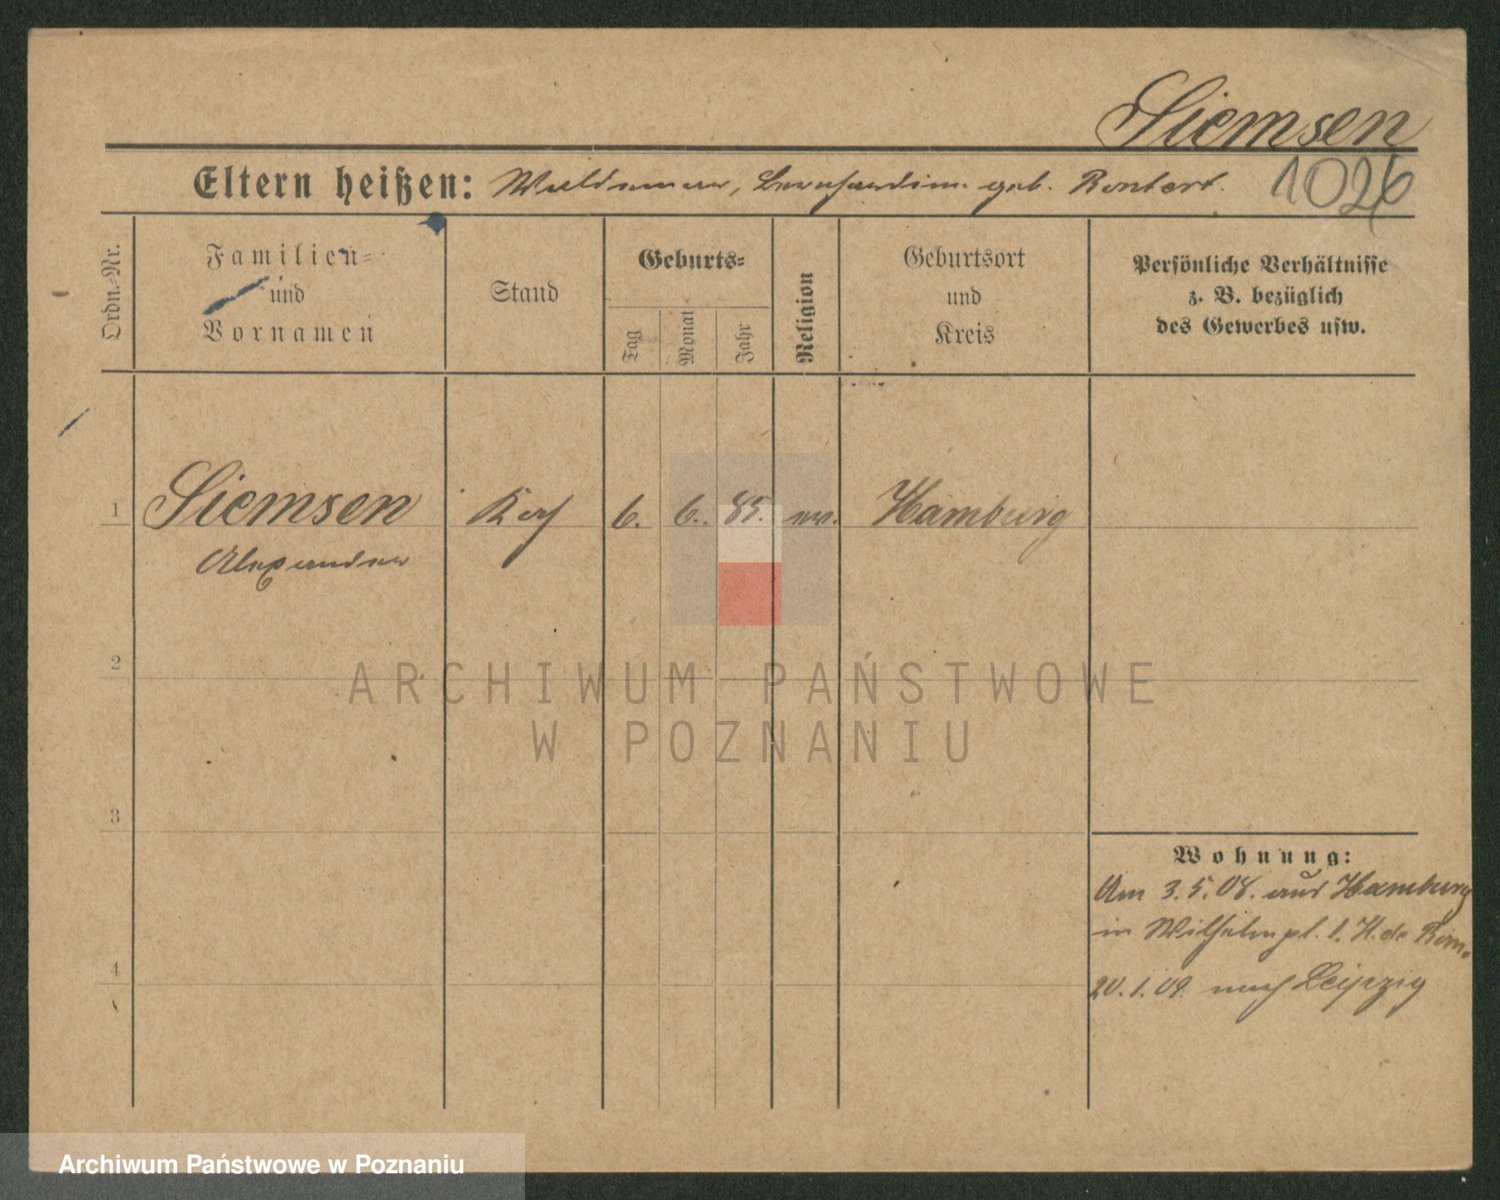 Siemsen
Eltern heißen: Waldemar, Bernhardine geb. Rentert.
1026
Ordn.-Nr.
Familien-
und
Vornamen
Stand
Geburts-
Tag
Monat
Jahr
Religion
Geburtsort
und
Kreis
Persönliche Verhältnisse
z. B. bezüglich
des Gewerbes usw.
1 Siemsen Koch 6. 6. 85. ev. Hamburg
Alexander
2
ARCHIWUM PAŃSTWOWE
W POZNANIU
3
Wohnung:
Am 3.5.08. aus Hamburg
in Wilhelmpl. 1. H. de Rom.
4
20.1.09. nach Leipzig
Archiwum Państwowe w Poznaniu